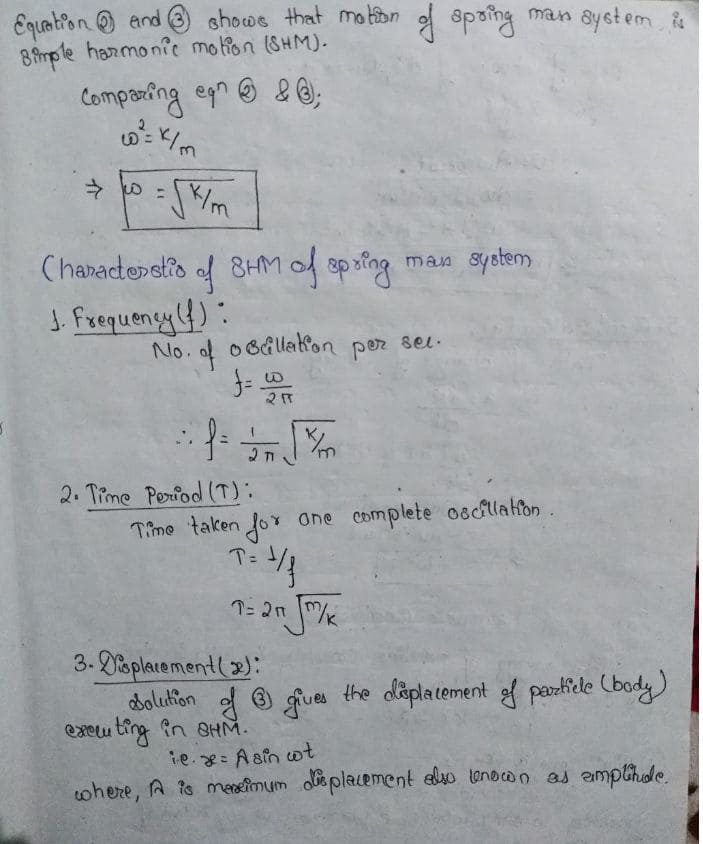 Equation ② and ③ shows that motion of spring mass system is
Simple harmonic motion (SHM).
Comparing eqn ② & ③;
ω² = K/m
⇒ ω = √K/m
Characterstic of SHM of spring mass system
1. Frequency (f) :
No. of oscillation per sec.
f = ω/2π
∴ f = 1/2π √K/m
2. Time Period (T) :
Time taken for one complete oscillation.
T = 1/f
T = 2π √m/K
3. Displacement (x) :
Solution of ③ gives the displacement of particle (body)
executing in SHM.
i.e. x = A sin ωt
where, A is maximum displacement also known as amplitude.